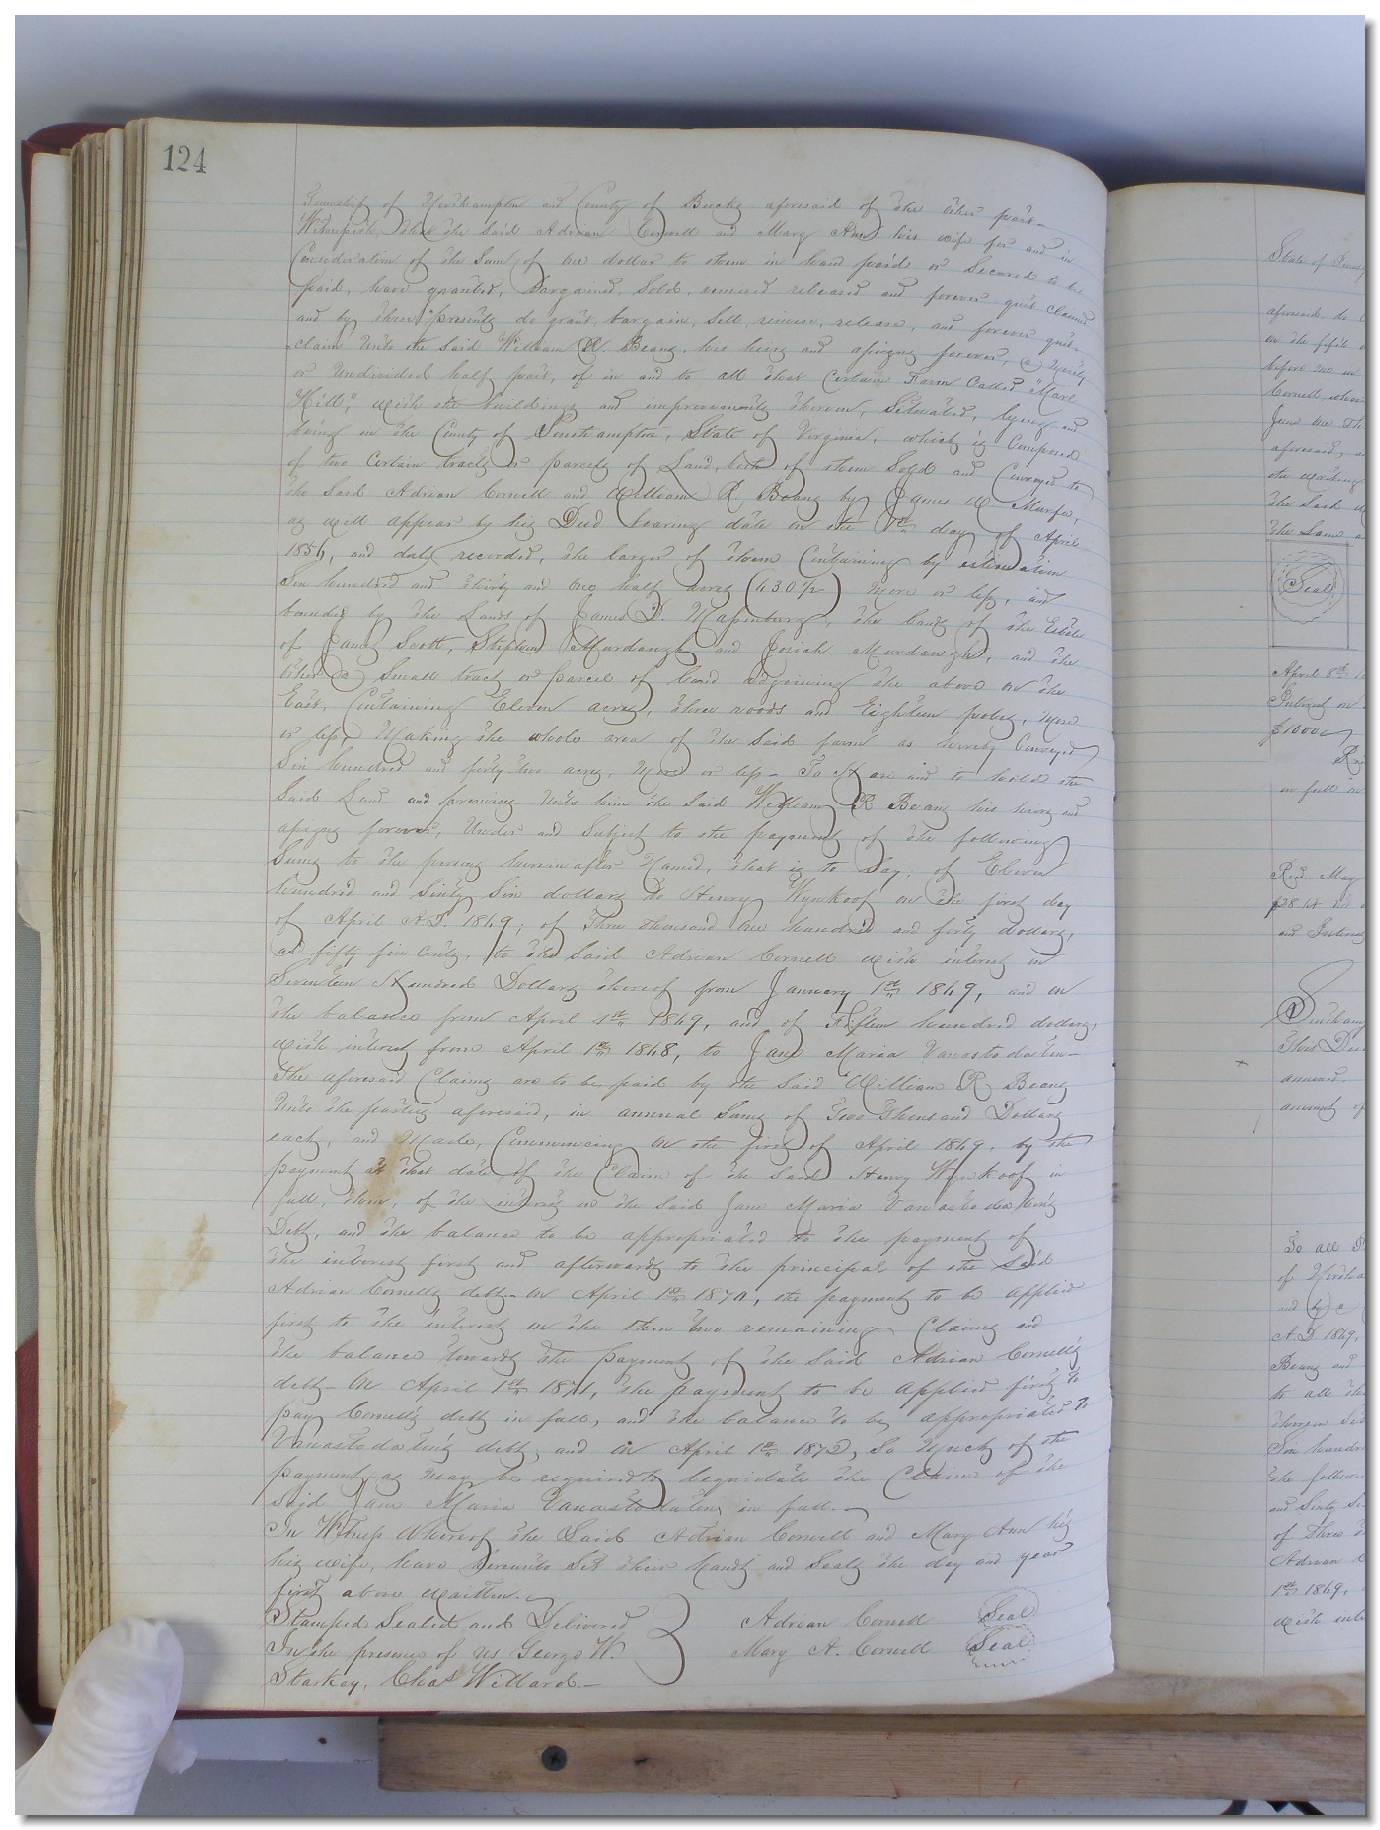 124
Township of Northampton and County of Bucks aforesaid of the other part—
Witnesseth, that the said Adrian Cornell and Mary Ann his wife for and in
Consideration of the Sum of one dollar to them in hand paid or Secured to be
paid, have granted, Bargained, Sold, remised released and forever quit claimed
and by these presents do grant, bargain, Sell, remise, release, and forever quit-
claim Unto the said William R. Beans. his heirs and assigns forever, a Moiety
or Undivided half part, of in and to all that Certain Farm Called "Marl
Hill," with the buildings and improvements thereon, Situated, lying and
being in the County of Southampton, State of Virginia, which is Composed
of two Certain tracts or parcels of Land, both of them Sold and Conveyed to
the Said Adrian Cornell and William R. Beans by James W. Murfee,
as will appear by his Deed bearing date on the 1st day of April
and duly recorded, the larger of them Containing by estimation
Six hundred and thirty and one half acres (630½) More or less, and
bounded by the Lands of James D. Massenburg, the lands of the Estate
of James Scott, Stephen Murdaugh and Josiah Murdaugh, and the
other a Small tract or parcel of land adjoining the above on the
East, Containing Eleven acres, three roods and Eighteen poles, More
or less, Making the whole area of the Said farm as hereby Conveyed
Six hundred and forty two acres, More or less— To Have and to hold the
Said Land and premises Unto him the Said William R Beans his heirs and
assigns forever, Under and Subject to the payment of the following
Sums to the persons hereinafter Named, that is to Say; of Eleven
hundred and Sixty Six dollars to Henry Wynkoop on the first day
of April A.D. 1869; of Three thousand one hundred and forty dollars,
and fifty five cents, to the Said Adrian Cornell with interest on
Seventeen Hundred Dollars thereof from January 1st 1869, and on
the balance from April 1st 1869, and of Fifteen hundred dollars,
with interest from April 1st 1868, to Jane Maria Vanartsdalen—
The aforesaid Claims are to be paid by the Said William R Beans
Unto the parties aforesaid, in annual Sums of Two Thousand Dollars
each, and Made, Commencing on the first of April 1869, by the
payment at that date of the Claim of the Said Henry Wynkoop in
full, then, of the interest on the Said Jane Maria Vanartsdalen's
Debt, and the balance to be appropriated to the payment of
the interest first and afterwards to the principal of the Said
Adrian Cornells debt— On April 1st 1870, the payment to be applied
first to the interest on the then two remaining Claims and
the balance towards the payment of the Said Adrian Cornell's
debt— On April 1st 1871, the payment to be applied first to
pay Cornell's debt in full, and the balance to be appropriated to
Vanartsdalen's debt, and on April 1st 1872, So Much of the
payment as may be required to liquidate the Claim of the
Said Jane Maria Vanartsdalen, in full.—
In Witness Whereof the Said Adrian Cornell and Mary Ann his
his wife, have hereunto Set their hands and Seals the day and year
first above written.
Stamped Sealed and Delivered
In the presence of us George W.
Starkey, Chas Willard.—
Adrian Cornell Seal
Mary A. Cornell Seal
State of
aforesaid
on the
before me
Cornell
June
aforesaid,
the
the Said
the Same
Seal
April 8th
Interest on
$1000
in full
Recd. May
and Interest
This Deed
amount of
To all
of
and by
A.D. 1869,
Beans and
to all
thereon
Six hundred
the following
and Sixty Six
of three
Adrian
1st 1869,
with